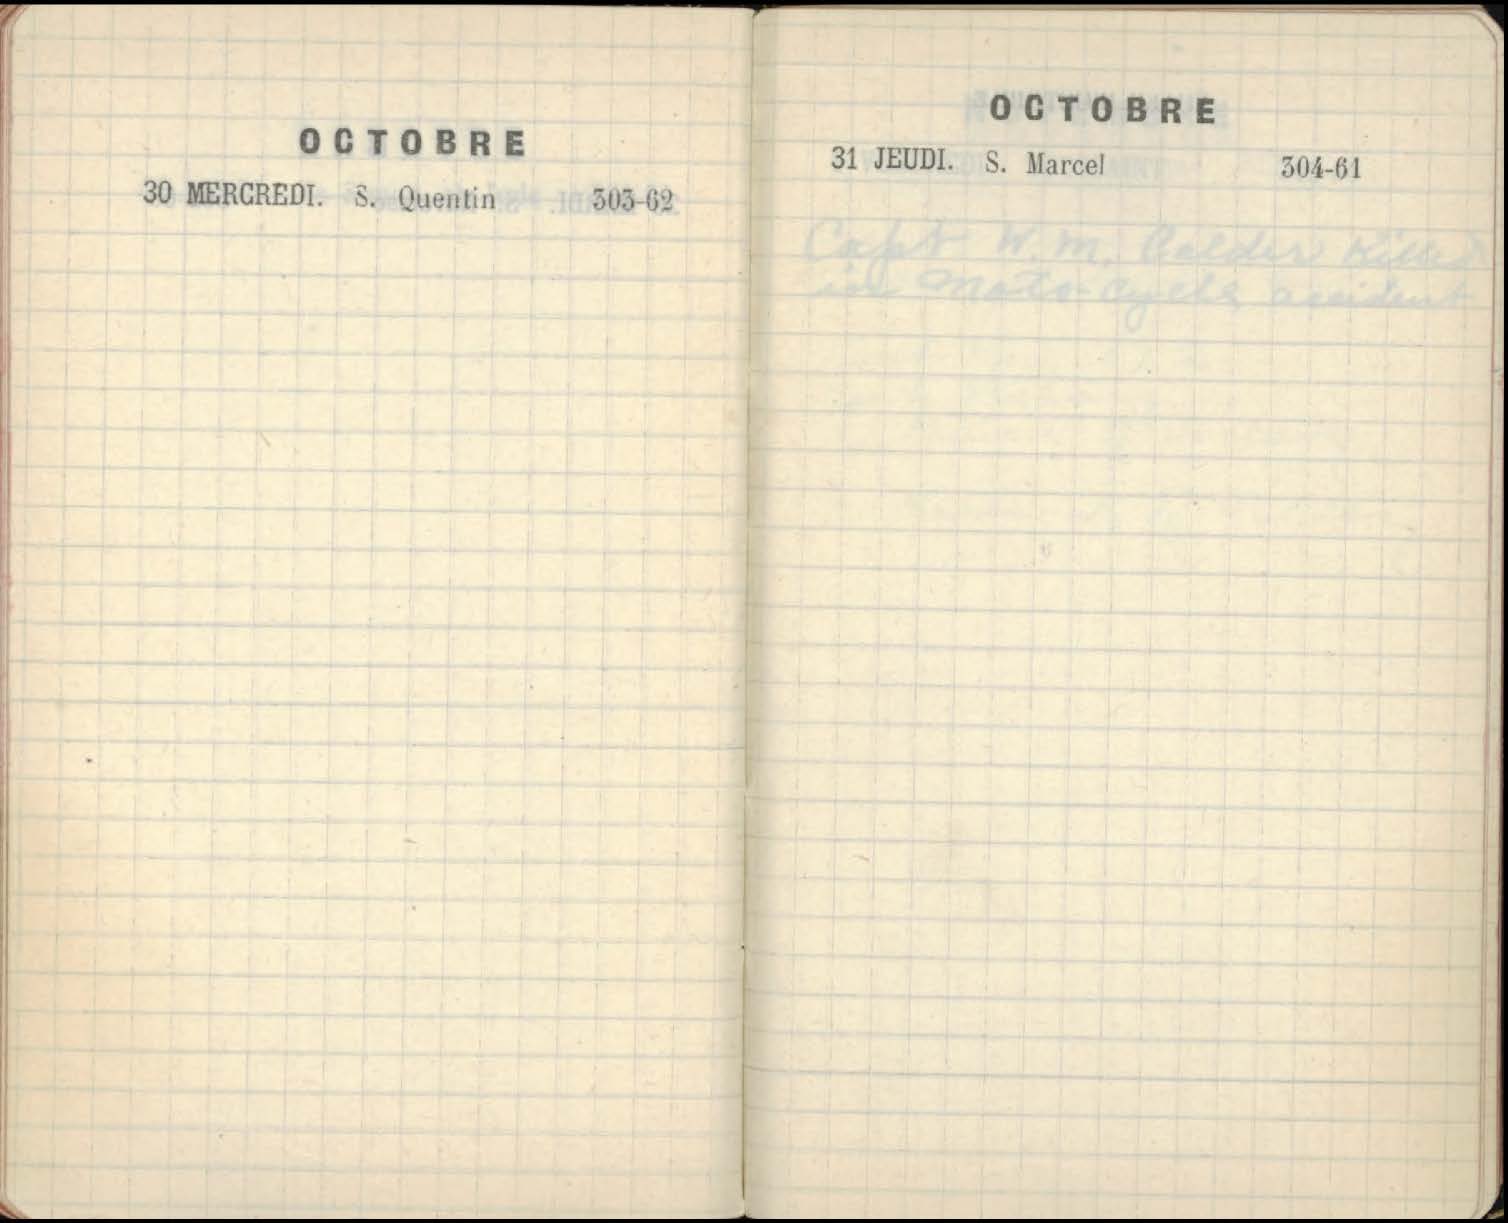 OCTOBRE
30 MERCREDI. S. Quentin 303-62
OCTOBRE
31 JEUDI. S. Marcel 304-61
Capt W. M. Calder Killed
in Moto Cycle accident